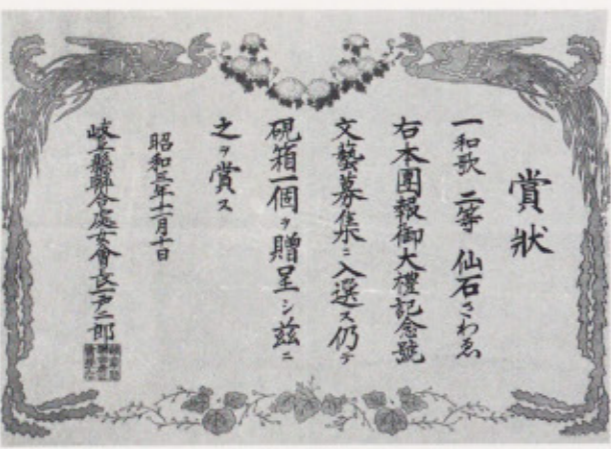 賞狀
一和歌 二等 仙石さわゑ
右本團報御大禮記念號
文藝募集ニ入選ス仍テ
硯箱一個ヲ贈呈シ茲ニ
之ヲ賞ス
昭和三年十一月十日
岐阜縣聯合處女會長一戸二郎